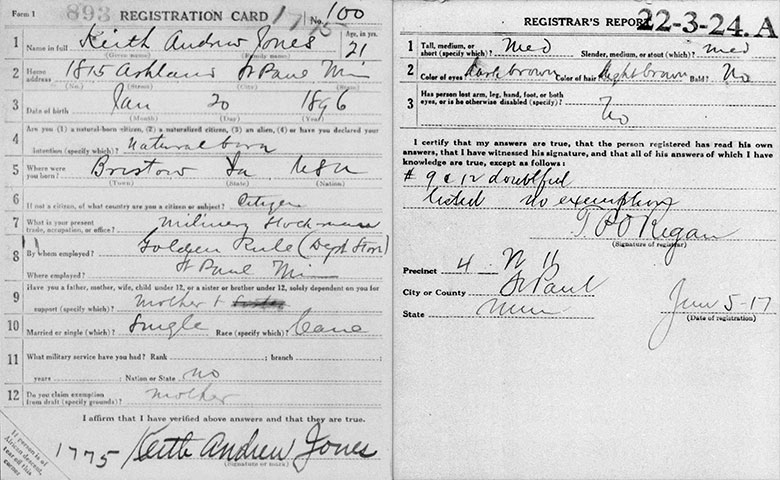 Form 1 893 REGISTRATION CARD 1775 No. 100
1 Name in full Keith Andrew Jones Age, in yrs. 21
(Given name) (Family name)
2 Home address 1815 Ashland St Paul Min
(No.) (Street) (City) (State)
3 Date of birth Jan 20 1896
(Month) (Day) (Year)
4 Are you (1) a natural-born citizen, (2) a naturalized citizen, (3) an alien, (4) or have you declared your
intention (specify which)? Natural born
5 Where were you born? Bristow Ia USA
(Town) (State) (Nation)
6 If not a citizen, of what country are you a citizen or subject? Citizen
7 What is your present trade, occupation, or office? Millinery Stockman
8 By whom employed? Golden Rule (Dept Store)
Where employed? St Paul Min
9 Have you a father, mother, wife, child under 12, or a sister or brother under 12, solely dependent on you for
support (specify which)? Mother +
10 Married or single (which)? Single Race (specify which)? Cauc
11 What military service have you had? Rank ; branch ;
years ; Nation or State no
12 Do you claim exemption from draft (specify grounds)? Mother
I affirm that I have verified above answers and that they are true.
1775 Keith Andrew Jones
(Signature or mark)
If person is of
African descent,
tear off this
corner
REGISTRAR'S REPORT 22-3-24. A
1 Tall, medium, or short (specify which)? Med Slender, medium, or stout (which)? med
2 Color of eyes dark brown Color of hair light brown Bald? No
3 Has person lost arm, leg, hand, foot, or both
eyes, or is he otherwise disabled (specify)?
No
I certify that my answers are true, that the person registered has read his own
answers, that I have witnessed his signature, and that all of his answers of which I have
knowledge are true, except as follows:
# 9 & 12 doubtful
listed no exemption
T P O'Regan
(Signature of registrar)
Precinct 4 W 11
City or County St Paul
State Minn June 5-17
(Date of registration)